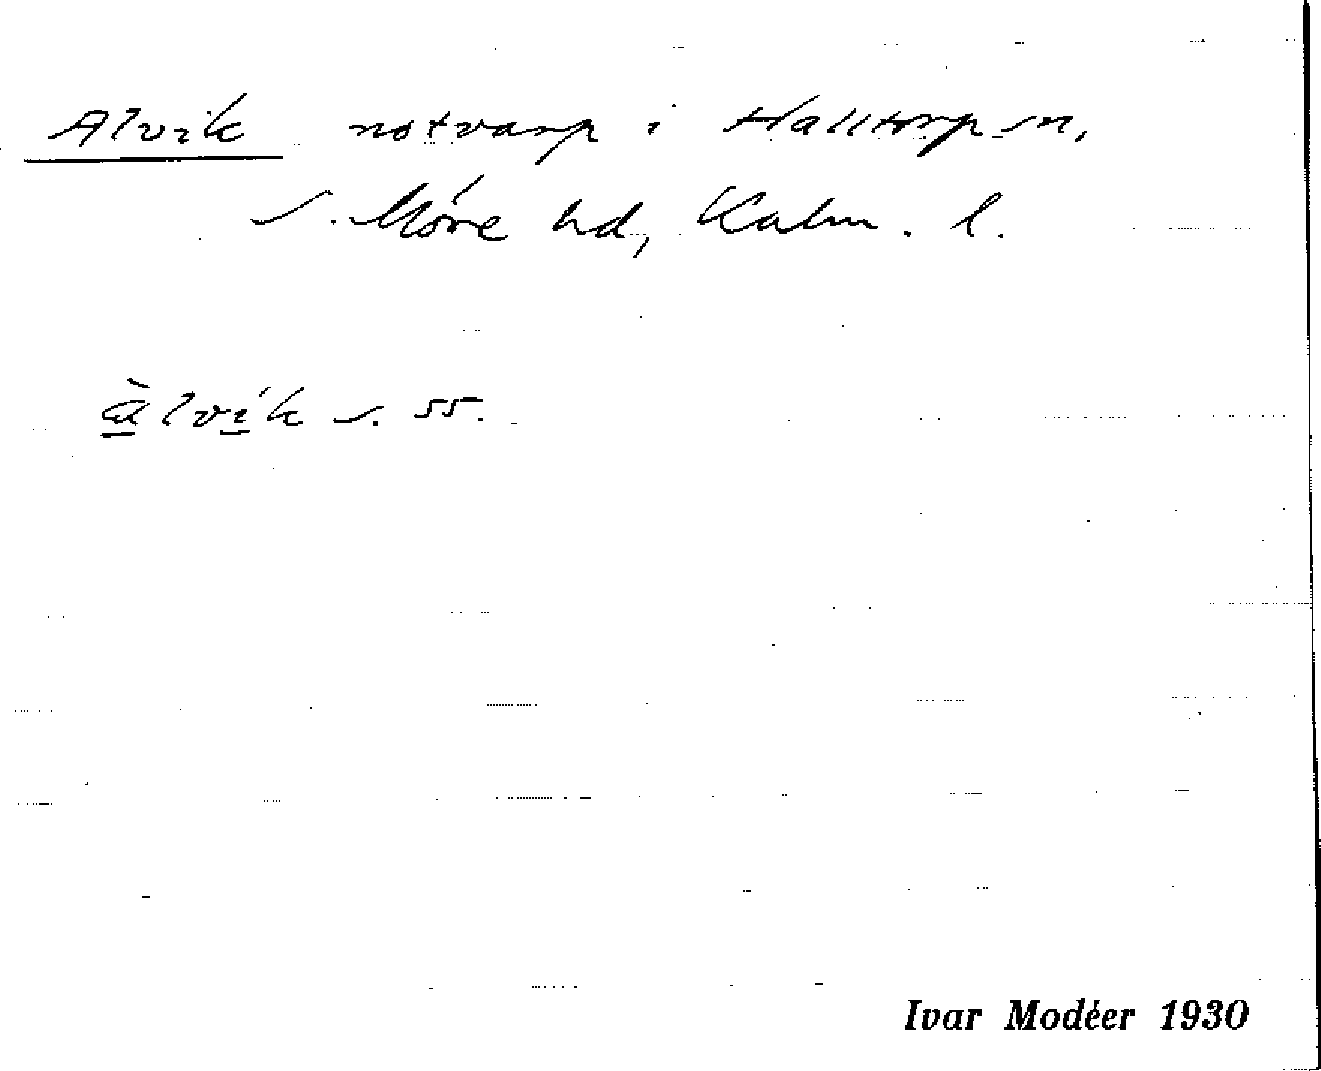 Alvik notvarp i Halltorp sn,
s. Möre hd, Kalm. l.
àlvík s. 55.
Ivar Modéer 1930